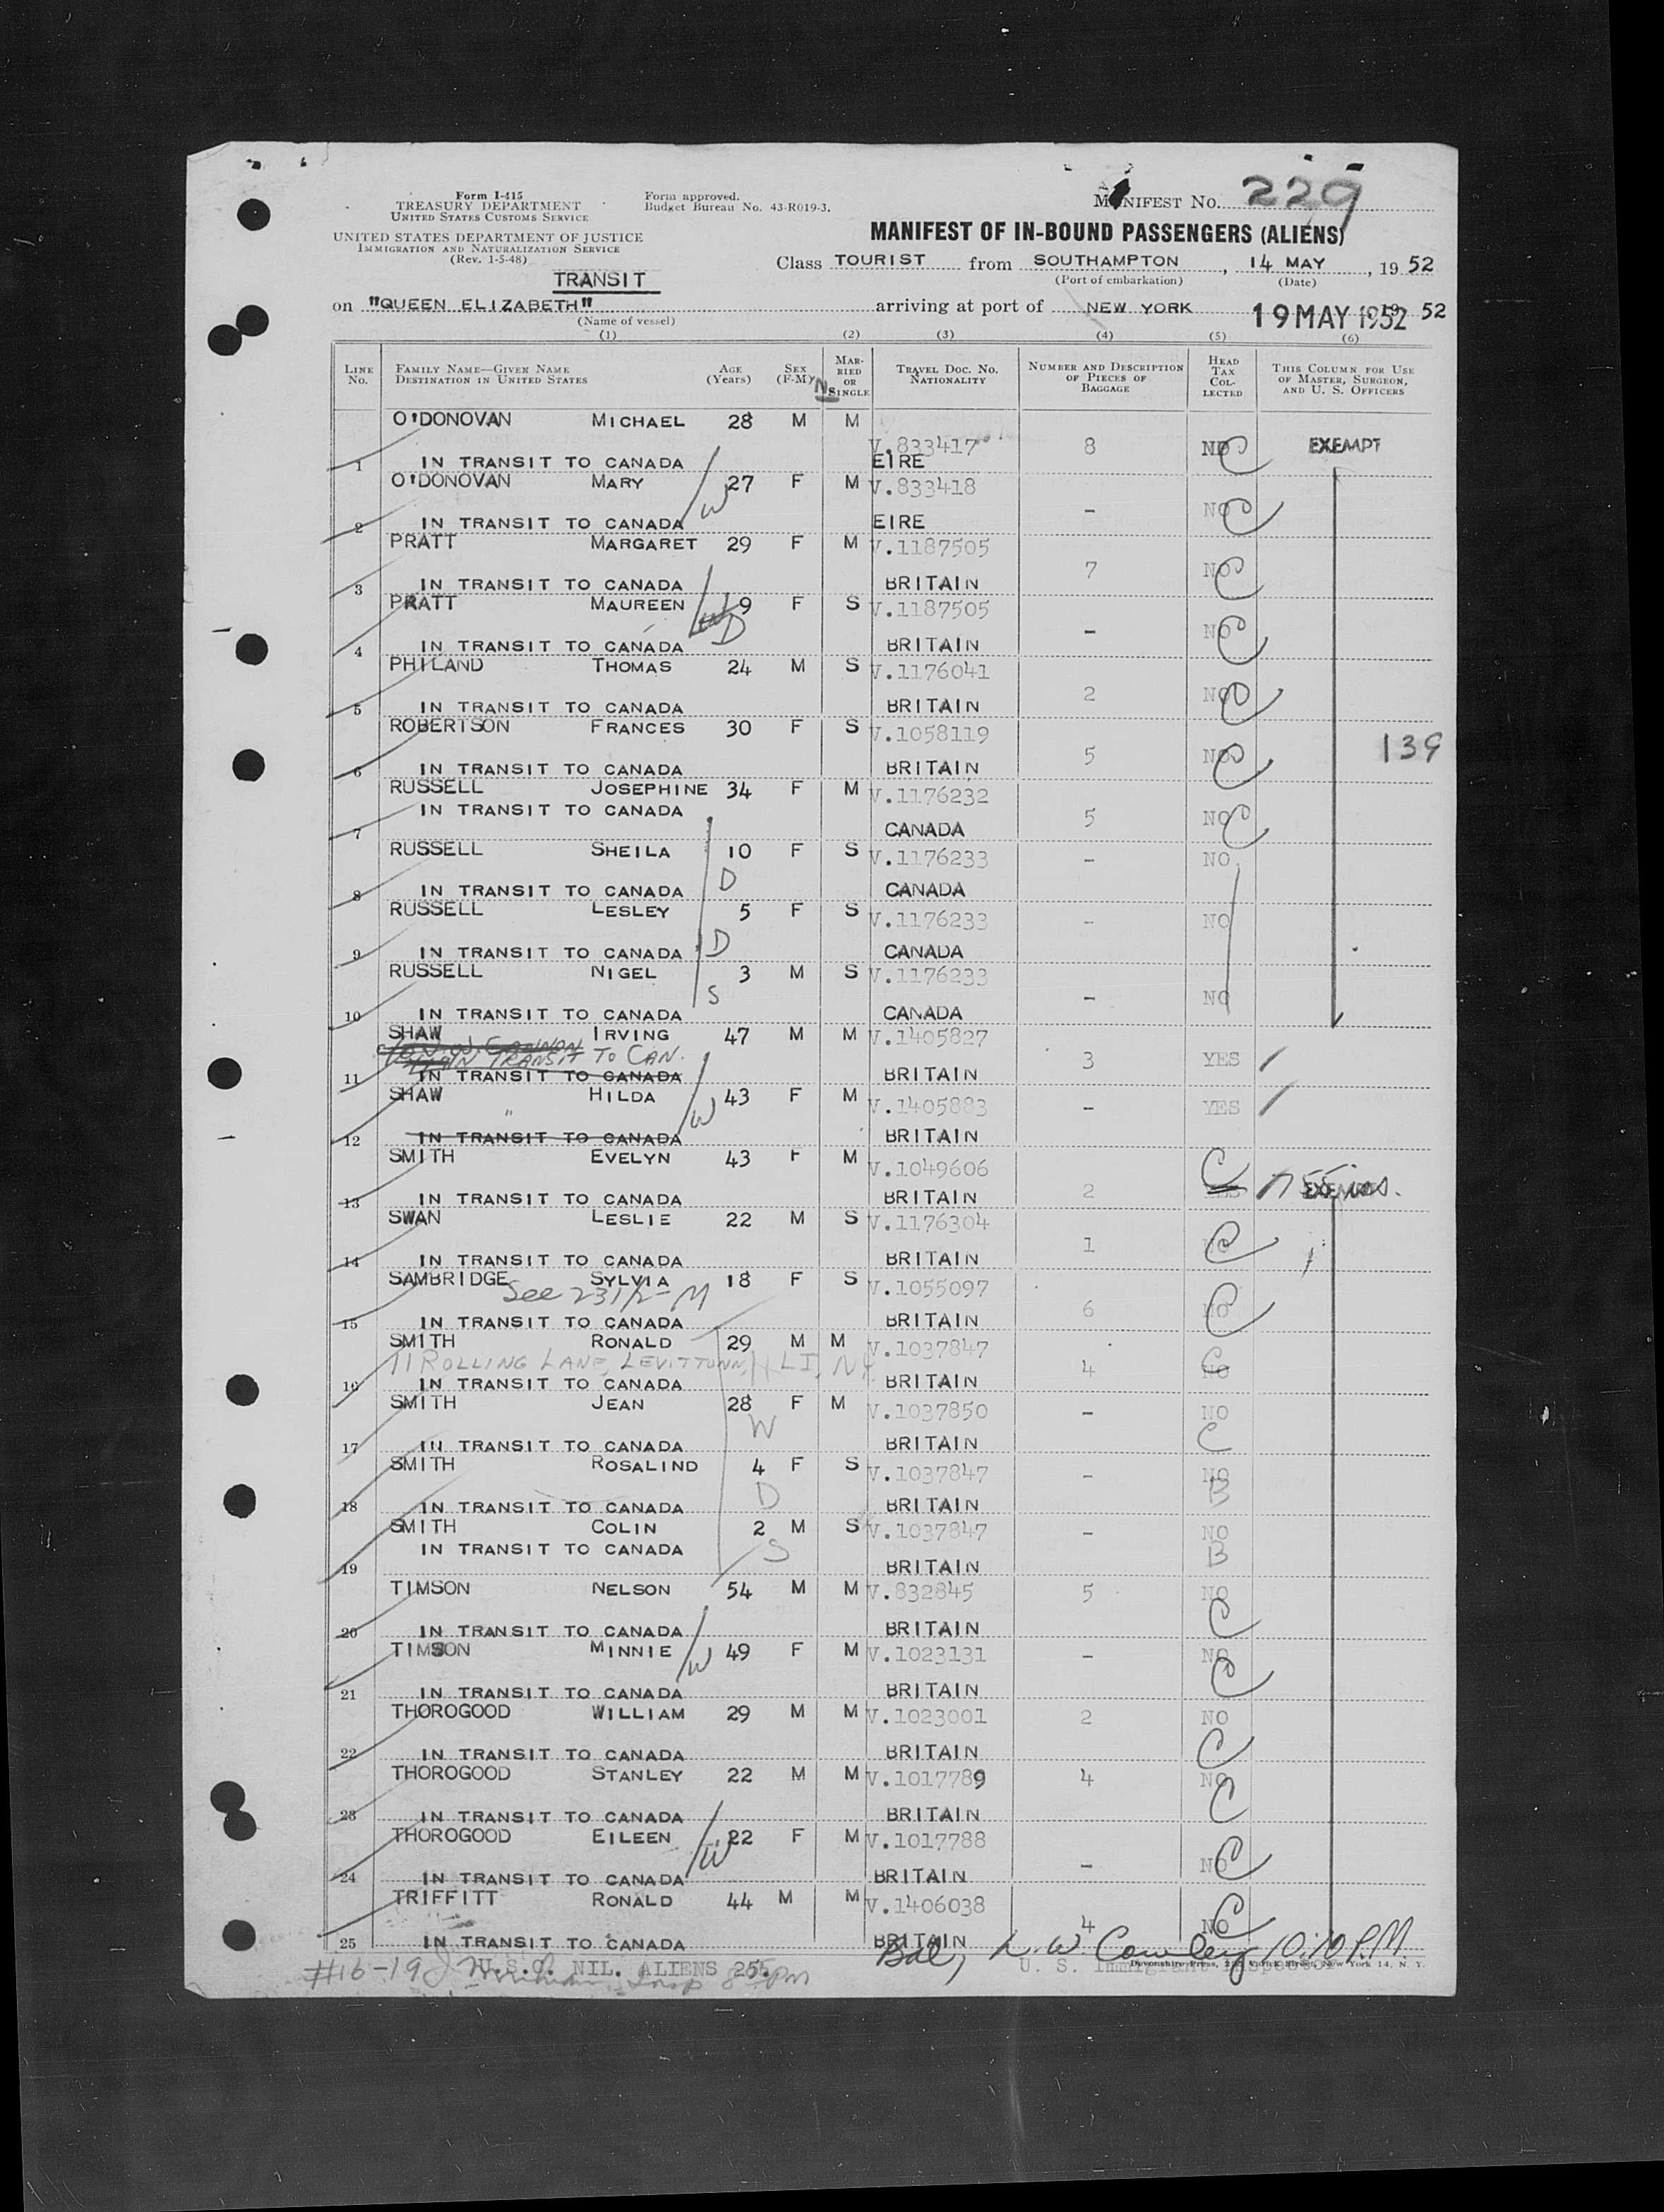 Form I-415
TREASURY DEPARTMENT
UNITED STATES CUSTOMS SERVICE
UNITED STATES DEPARTMENT OF JUSTICE
IMMIGRATION AND NATURALIZATION SERVICE
(Rev. 1-5-48)
Form approved.
Budget Bureau No. 43-R019-3.
MANIFEST NO. 229
MANIFEST OF IN-BOUND PASSENGERS (ALIENS)
Class TOURIST from SOUTHAMPTON, 14 MAY, 1952
(Port of embarkation) (Date)
TRANSIT
on "QUEEN ELIZABETH" arriving at port of NEW YORK 19 MAY 1952 52
(Name of vessel)
(1) (2) (3) (4) (5) (6)
LINE NO. FAMILY NAME—GIVEN NAME DESTINATION IN UNITED STATES AGE (Years) SEX (F-M) MARRIED OR SINGLE TRAVEL DOC. NO. NATIONALITY NUMBER AND DESCRIPTION OF PIECES OF BAGGAGE HEAD TAX COLLECTED THIS COLUMN FOR USE OF MASTER, SURGEON, AND U. S. OFFICERS
O'DONOVAN MICHAEL 28 M M V.833417 8 NO C EXEMPT
1 IN TRANSIT TO CANADA EIRE
O'DONOVAN MARY W 27 F M V.833418 - NO C
2 IN TRANSIT TO CANADA EIRE
PRATT MARGARET 29 F M V.1187505 7 NO C
3 IN TRANSIT TO CANADA BRITAIN
PRATT MAUREEN 9 F S V.1187505 - NO C
4 IN TRANSIT TO CANADA D BRITAIN
PHILAND THOMAS 24 M S V.1176041 2 NO C
5 IN TRANSIT TO CANADA BRITAIN
ROBERTSON FRANCES 30 F S V.1058119 5 NO C 139
6 IN TRANSIT TO CANADA BRITAIN
RUSSELL JOSEPHINE 34 F M V.1176232 5 NO C
7 IN TRANSIT TO CANADA CANADA
RUSSELL SHEILA 10 F S V.1176233 - NO
8 IN TRANSIT TO CANADA D CANADA
RUSSELL LESLEY 5 F S V.1176233 - NO
9 IN TRANSIT TO CANADA D CANADA
RUSSELL NIGEL 3 M S V.1176233 - NO
10 IN TRANSIT TO CANADA S CANADA
SHAW IRVING 47 M M V.1405827 3 YES
IN TRANSIT TO CAN.
11 IN TRANSIT TO CANADA BRITAIN
SHAW HILDA W 43 F M V.1405883 - YES
"
12 IN TRANSIT TO CANADA BRITAIN
SMITH EVELYN 43 F M V.1049606 2 YES C EXEMPT
13 IN TRANSIT TO CANADA BRITAIN
SWAN LESLIE 22 M S V.1176304 1 NO C
14 IN TRANSIT TO CANADA BRITAIN
SAMBRIDGE SYLVIA 18 F S V.1055097 6 NO C
See 231/2-M
15 IN TRANSIT TO CANADA BRITAIN
SMITH RONALD 29 M M V.1037847 4 NO C
71 ROLLING LANE, LEVITTOWN, L I, NY
16 IN TRANSIT TO CANADA BRITAIN
SMITH JEAN 28 F M V.1037850 - NO C
17 IN TRANSIT TO CANADA W BRITAIN
SMITH ROSALIND 4 F S V.1037847 - NO B
18 IN TRANSIT TO CANADA D BRITAIN
SMITH COLIN 2 M S V.1037847 - NO B
19 IN TRANSIT TO CANADA S BRITAIN
TIMSON NELSON 54 M M V.832845 5 NO C
20 IN TRANSIT TO CANADA BRITAIN
TIMSON MINNIE W 49 F M V.1023131 - NO C
21 IN TRANSIT TO CANADA BRITAIN
THOROGOOD WILLIAM 29 M M V.1023001 2 NO C
22 IN TRANSIT TO CANADA BRITAIN
THOROGOOD STANLEY 22 M M V.1017789 4 NO C
23 IN TRANSIT TO CANADA BRITAIN
THOROGOOD EILEEN W 22 F M V.1017788 - NO C
24 IN TRANSIT TO CANADA BRITAIN
TRIFFITT RONALD 44 M M V.1406038 4 NO C
25 IN TRANSIT TO CANADA BRITAIN
Bal, L. W. Cowley 10:10 P.M.
#16-19 U.S.C. NIL. ALIENS 25. Insp PM
U. S. Immigrant Inspector
Devonshire Press, Varick Street, New York 14, N. Y.